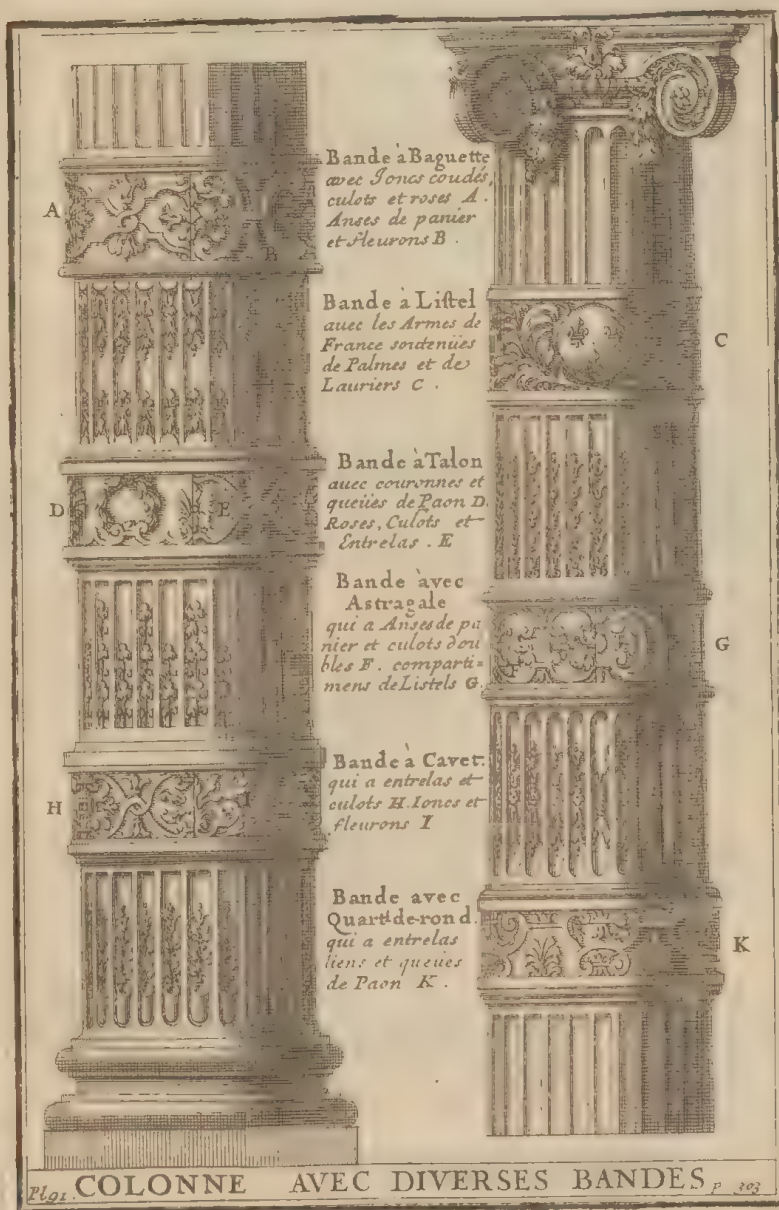 Bande à Baguette
avec Joncs coudés,
culots et roses A.
Anses de panier
et fleurons B.
Bande à Listel
auec les Armes de
France soutenües
de Palmes et de
Lauriers C.
Bande à Talon
auec couronnes et
queües de Paon D.
Roses, Culots et
Entrelas. E
Bande avec
Astragale
qui a Anses de pa
nier et culots dou
bles F. comparti=
mens de Listels G.
Bande à Cavet.
qui a entrelas et
culots H. Ioncs et
fleurons I
Bande avec
Quart de-rond.
qui a entrelas
liens et queües
de Paon K.
A
B
D
E
H
I
C
G
K
Pl 91. COLONNE AVEC DIVERSES BANDES p 303